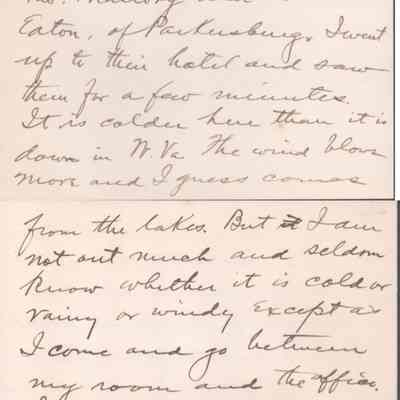 Eaton, of Parkersburg, I went
up to their hotel and saw
them for a few minutes.
It is colder here than it is
down in W. Va. The wind blows
more and I guess comes
from the lakes. But I am
not out much and seldom
know whether it is cold or
rainy or windy except as
I come and go between
my room and the office.